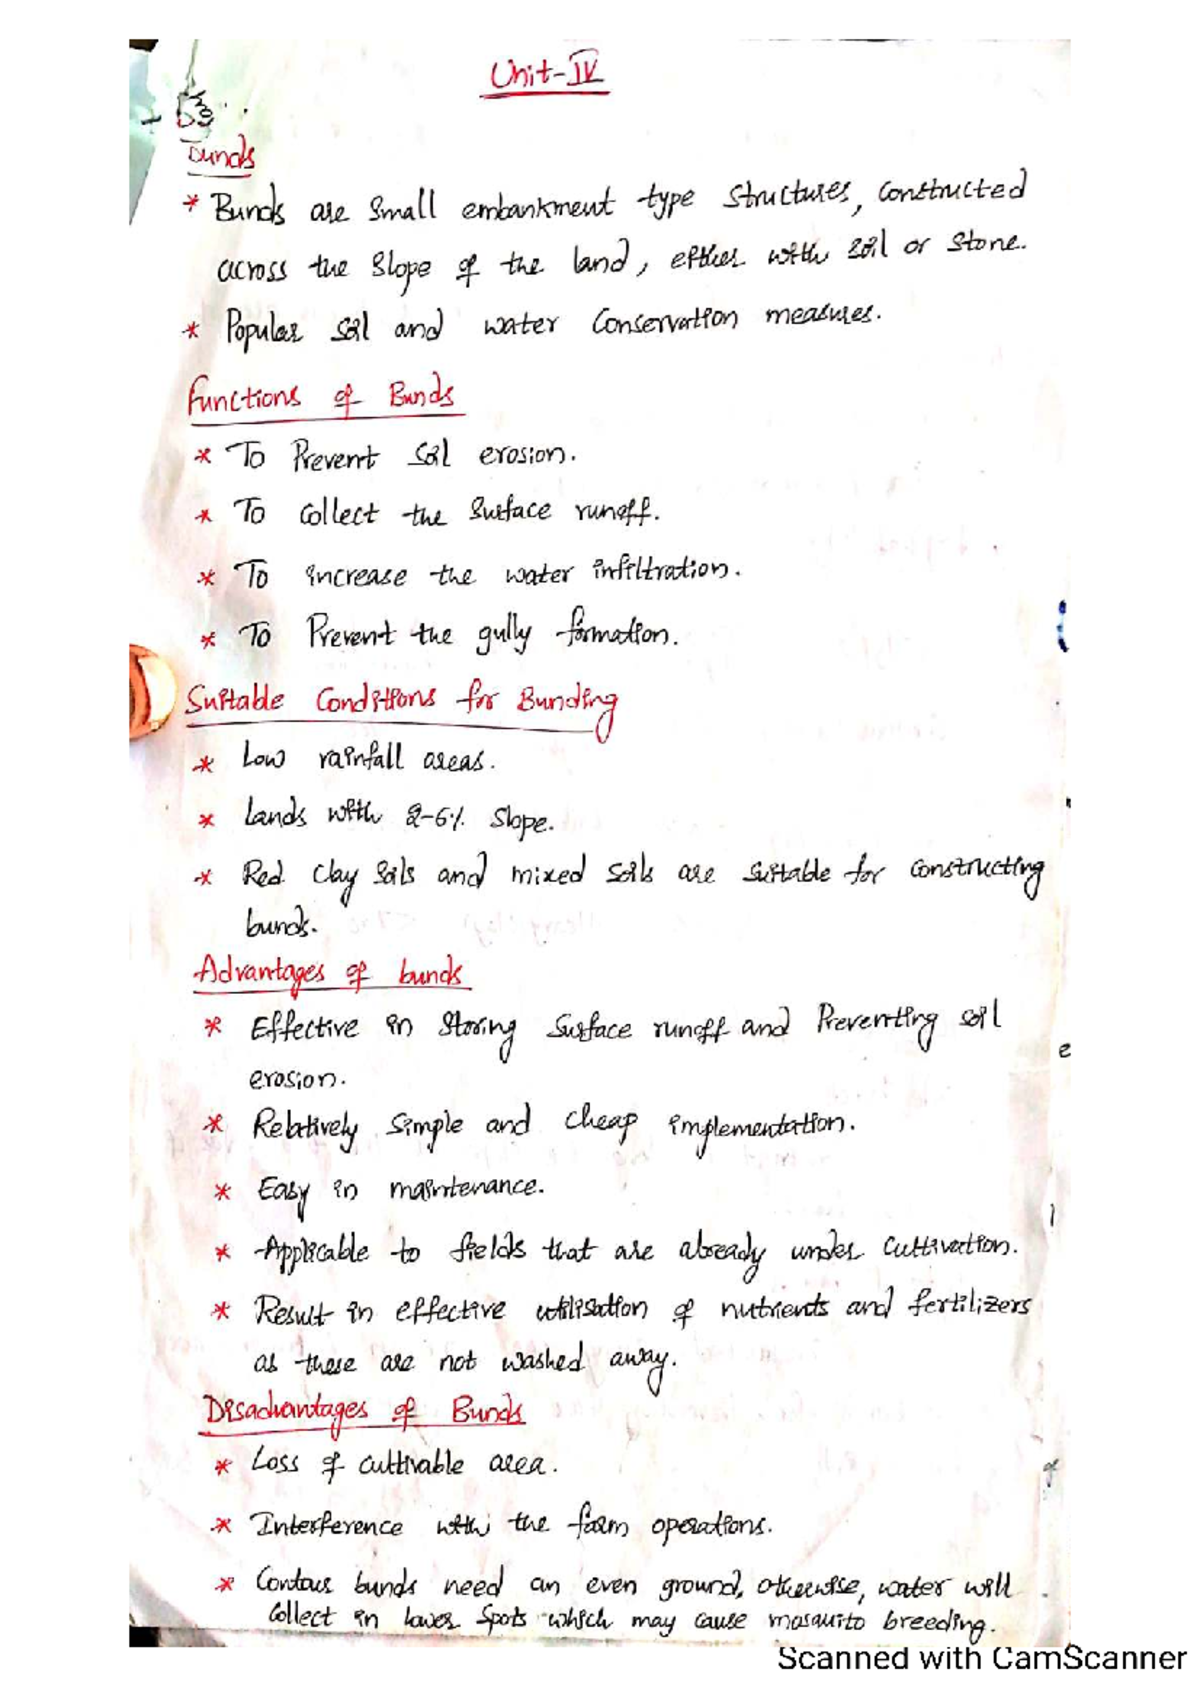 Unit-IV
Bunds
* Bunds are small embankment type structures, constructed
across the slope of the land, either with soil or stone.
* Popular soil and water conservation measures.
Functions of Bunds
* To Prevent soil erosion.
* To collect the surface runoff.
* To increase the water infiltration.
* To Prevent the gully formation.
Suitable Conditions for Bunding
* Low rainfall areas.
* Lands with 2-6% slope.
* Red clay soils and mixed soils are suitable for constructing
bunds.
Advantages of bunds
* Effective in storing surface runoff and Preventing soil
erosion.
* Relatively simple and cheap implementation.
* Easy in maintenance.
* Applicable to fields that are already under cultivation.
* Result in effective utilisation of nutrients and fertilizers
as these are not washed away.
Disadvantages of Bunds
* Loss of cultivable area.
* Interference with the farm operations.
* Contour bunds need an even ground, otherwise, water will
collect in lower spots which may cause mosquito breeding.
Scanned with CamScanner